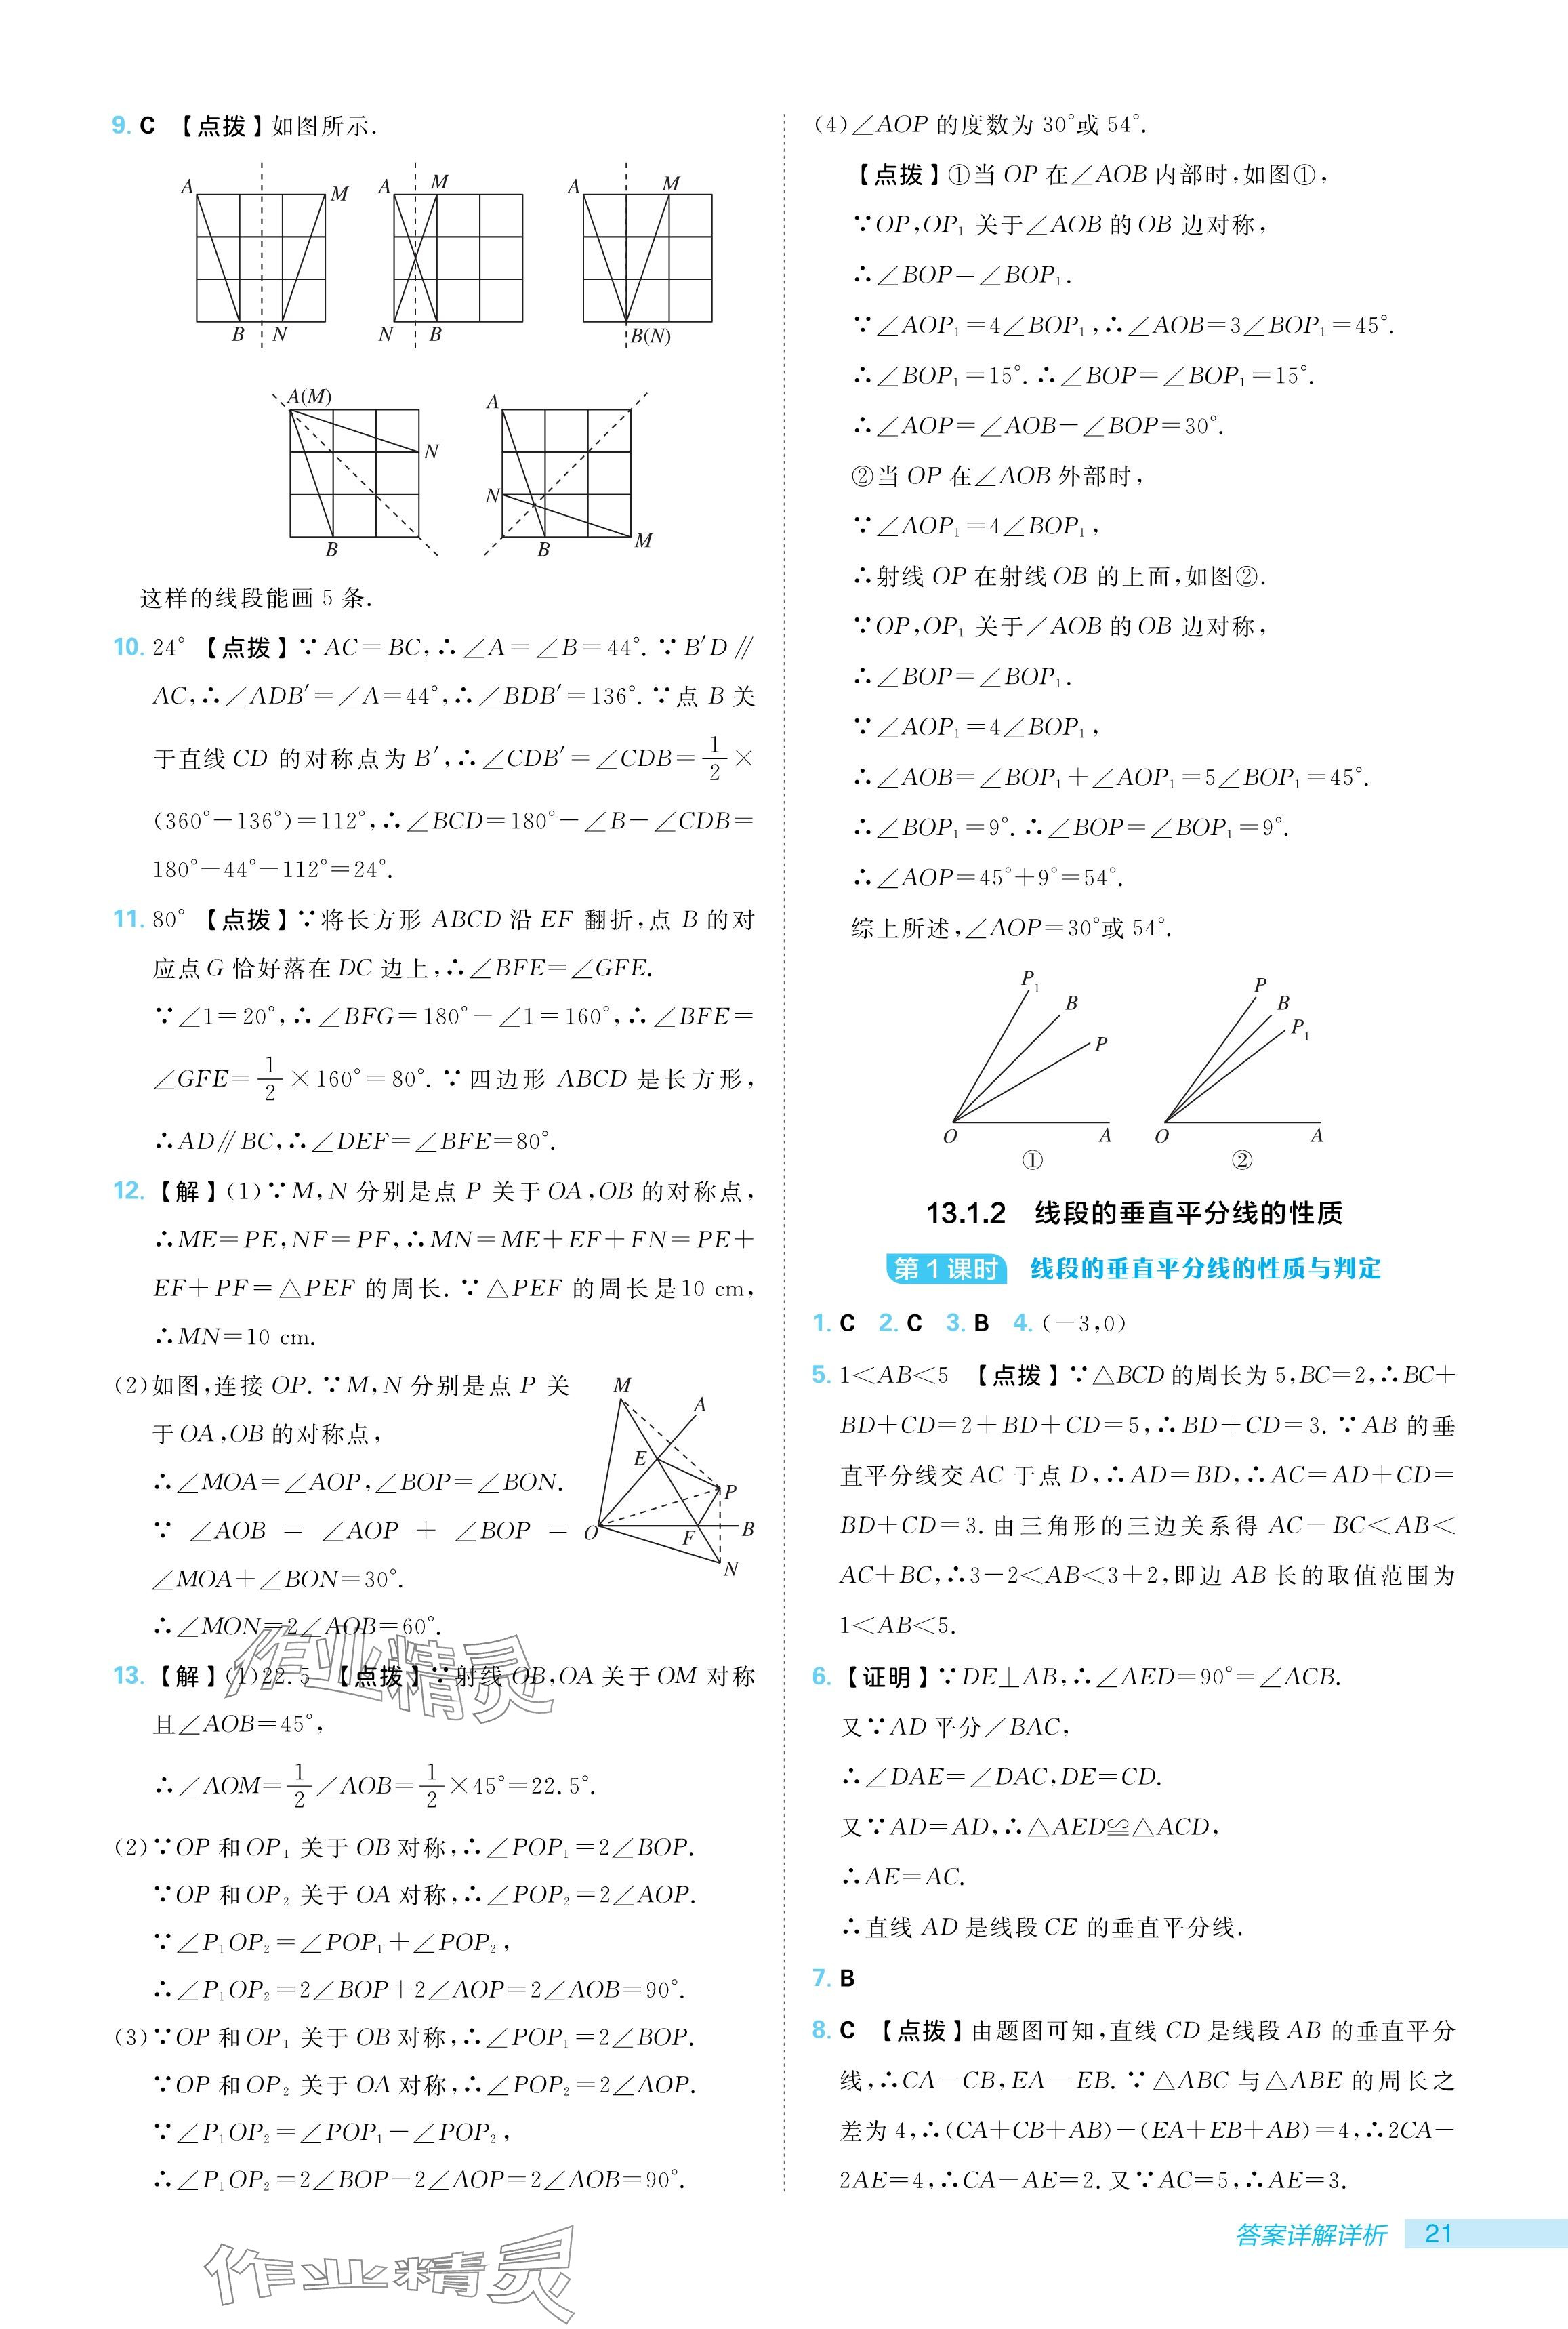 9. C 【点拨】如图所示.
A M B N
A M N B
A M B(N)
A(M) N B
A N B M
这样的线段能画 5 条.
10. 24° 【点拨】∵AC=BC,∴∠A=∠B=44°. ∵B′D∥
AC,∴∠ADB′=∠A=44°,∴∠BDB′=136°. ∵点 B 关
于直线 CD 的对称点为 B′,∴∠CDB′=∠CDB=1/2×
(360°−136°)=112°,∴∠BCD=180°−∠B−∠CDB=
180°−44°−112°=24°.
11. 80° 【点拨】∵将长方形 ABCD 沿 EF 翻折,点 B 的对
应点 G 恰好落在 DC 边上,∴∠BFE=∠GFE.
∵∠1=20°,∴∠BFG=180°−∠1=160°,∴∠BFE=
∠GFE=1/2×160°=80°. ∵四边形 ABCD 是长方形,
∴AD∥BC,∴∠DEF=∠BFE=80°.
12. 【解】(1)∵M,N 分别是点 P 关于 OA,OB 的对称点,
∴ME=PE,NF=PF,∴MN=ME+EF+FN=PE+
EF+PF=△PEF 的周长. ∵△PEF 的周长是10 cm,
∴MN=10 cm.
(2)如图,连接 OP. ∵M,N 分别是点 P 关
于 OA,OB 的对称点,
∴∠MOA=∠AOP,∠BOP=∠BON.
∵∠AOB=∠AOP+∠BOP=
∠MOA+∠BON=30°.
∴∠MON=2∠AOB=60°.
M A E P O F B N
13. 【解】(1)22.5 【点拨】∵射线 OB,OA 关于 OM 对称
且∠AOB=45°,
∴∠AOM=1/2∠AOB=1/2×45°=22.5°.
(2)∵OP 和 OP₁ 关于 OB 对称,∴∠POP₁=2∠BOP.
∵OP 和 OP₂ 关于 OA 对称,∴∠POP₂=2∠AOP.
∵∠P₁OP₂=∠POP₁+∠POP₂,
∴∠P₁OP₂=2∠BOP+2∠AOP=2∠AOB=90°.
(3)∵OP 和 OP₁ 关于 OB 对称,∴∠POP₁=2∠BOP.
∵OP 和 OP₂ 关于 OA 对称,∴∠POP₂=2∠AOP.
∵∠P₁OP₂=∠POP₁−∠POP₂,
∴∠P₁OP₂=2∠BOP−2∠AOP=2∠AOB=90°.
(4)∠AOP 的度数为 30°或 54°.
【点拨】①当 OP 在∠AOB 内部时,如图①,
∵OP,OP₁ 关于∠AOB 的 OB 边对称,
∴∠BOP=∠BOP₁.
∵∠AOP₁=4∠BOP₁,∴∠AOB=3∠BOP₁=45°.
∴∠BOP₁=15°. ∴∠BOP=∠BOP₁=15°.
∴∠AOP=∠AOB−∠BOP=30°.
②当 OP 在∠AOB 外部时,
∵∠AOP₁=4∠BOP₁,
∴射线 OP 在射线 OB 的上面,如图②.
∵OP,OP₁ 关于∠AOB 的 OB 边对称,
∴∠BOP=∠BOP₁.
∵∠AOP₁=4∠BOP₁,
∴∠AOB=∠BOP₁+∠AOP₁=5∠BOP₁=45°.
∴∠BOP₁=9°. ∴∠BOP=∠BOP₁=9°.
∴∠AOP=45°+9°=54°.
综上所述,∠AOP=30°或 54°.
P₁ B P O A ①
P B P₁ O A ②
13.1.2 线段的垂直平分线的性质
第 1 课时 线段的垂直平分线的性质与判定
1. C 2. C 3. B 4. (−3,0)
5. 1<AB<5 【点拨】∵△BCD 的周长为 5,BC=2,∴BC+
BD+CD=2+BD+CD=5,∴BD+CD=3. ∵AB 的垂
直平分线交 AC 于点 D,∴AD=BD,∴AC=AD+CD=
BD+CD=3. 由三角形的三边关系得 AC−BC<AB<
AC+BC,∴3−2<AB<3+2,即边 AB 长的取值范围为
1<AB<5.
6. 【证明】∵DE⊥AB,∴∠AED=90°=∠ACB.
又∵AD 平分∠BAC,
∴∠DAE=∠DAC,DE=CD.
又∵AD=AD,∴△AED≌△ACD,
∴AE=AC.
∴直线 AD 是线段 CE 的垂直平分线.
7. B
8. C 【点拨】由题图可知,直线 CD 是线段 AB 的垂直平分
线,∴CA=CB,EA=EB. ∵△ABC 与△ABE 的周长之
差为 4,∴(CA+CB+AB)−(EA+EB+AB)=4,∴2CA−
2AE=4,∴CA−AE=2. 又∵AC=5,∴AE=3.
答案详解详析 21
作业精灵
作业精灵